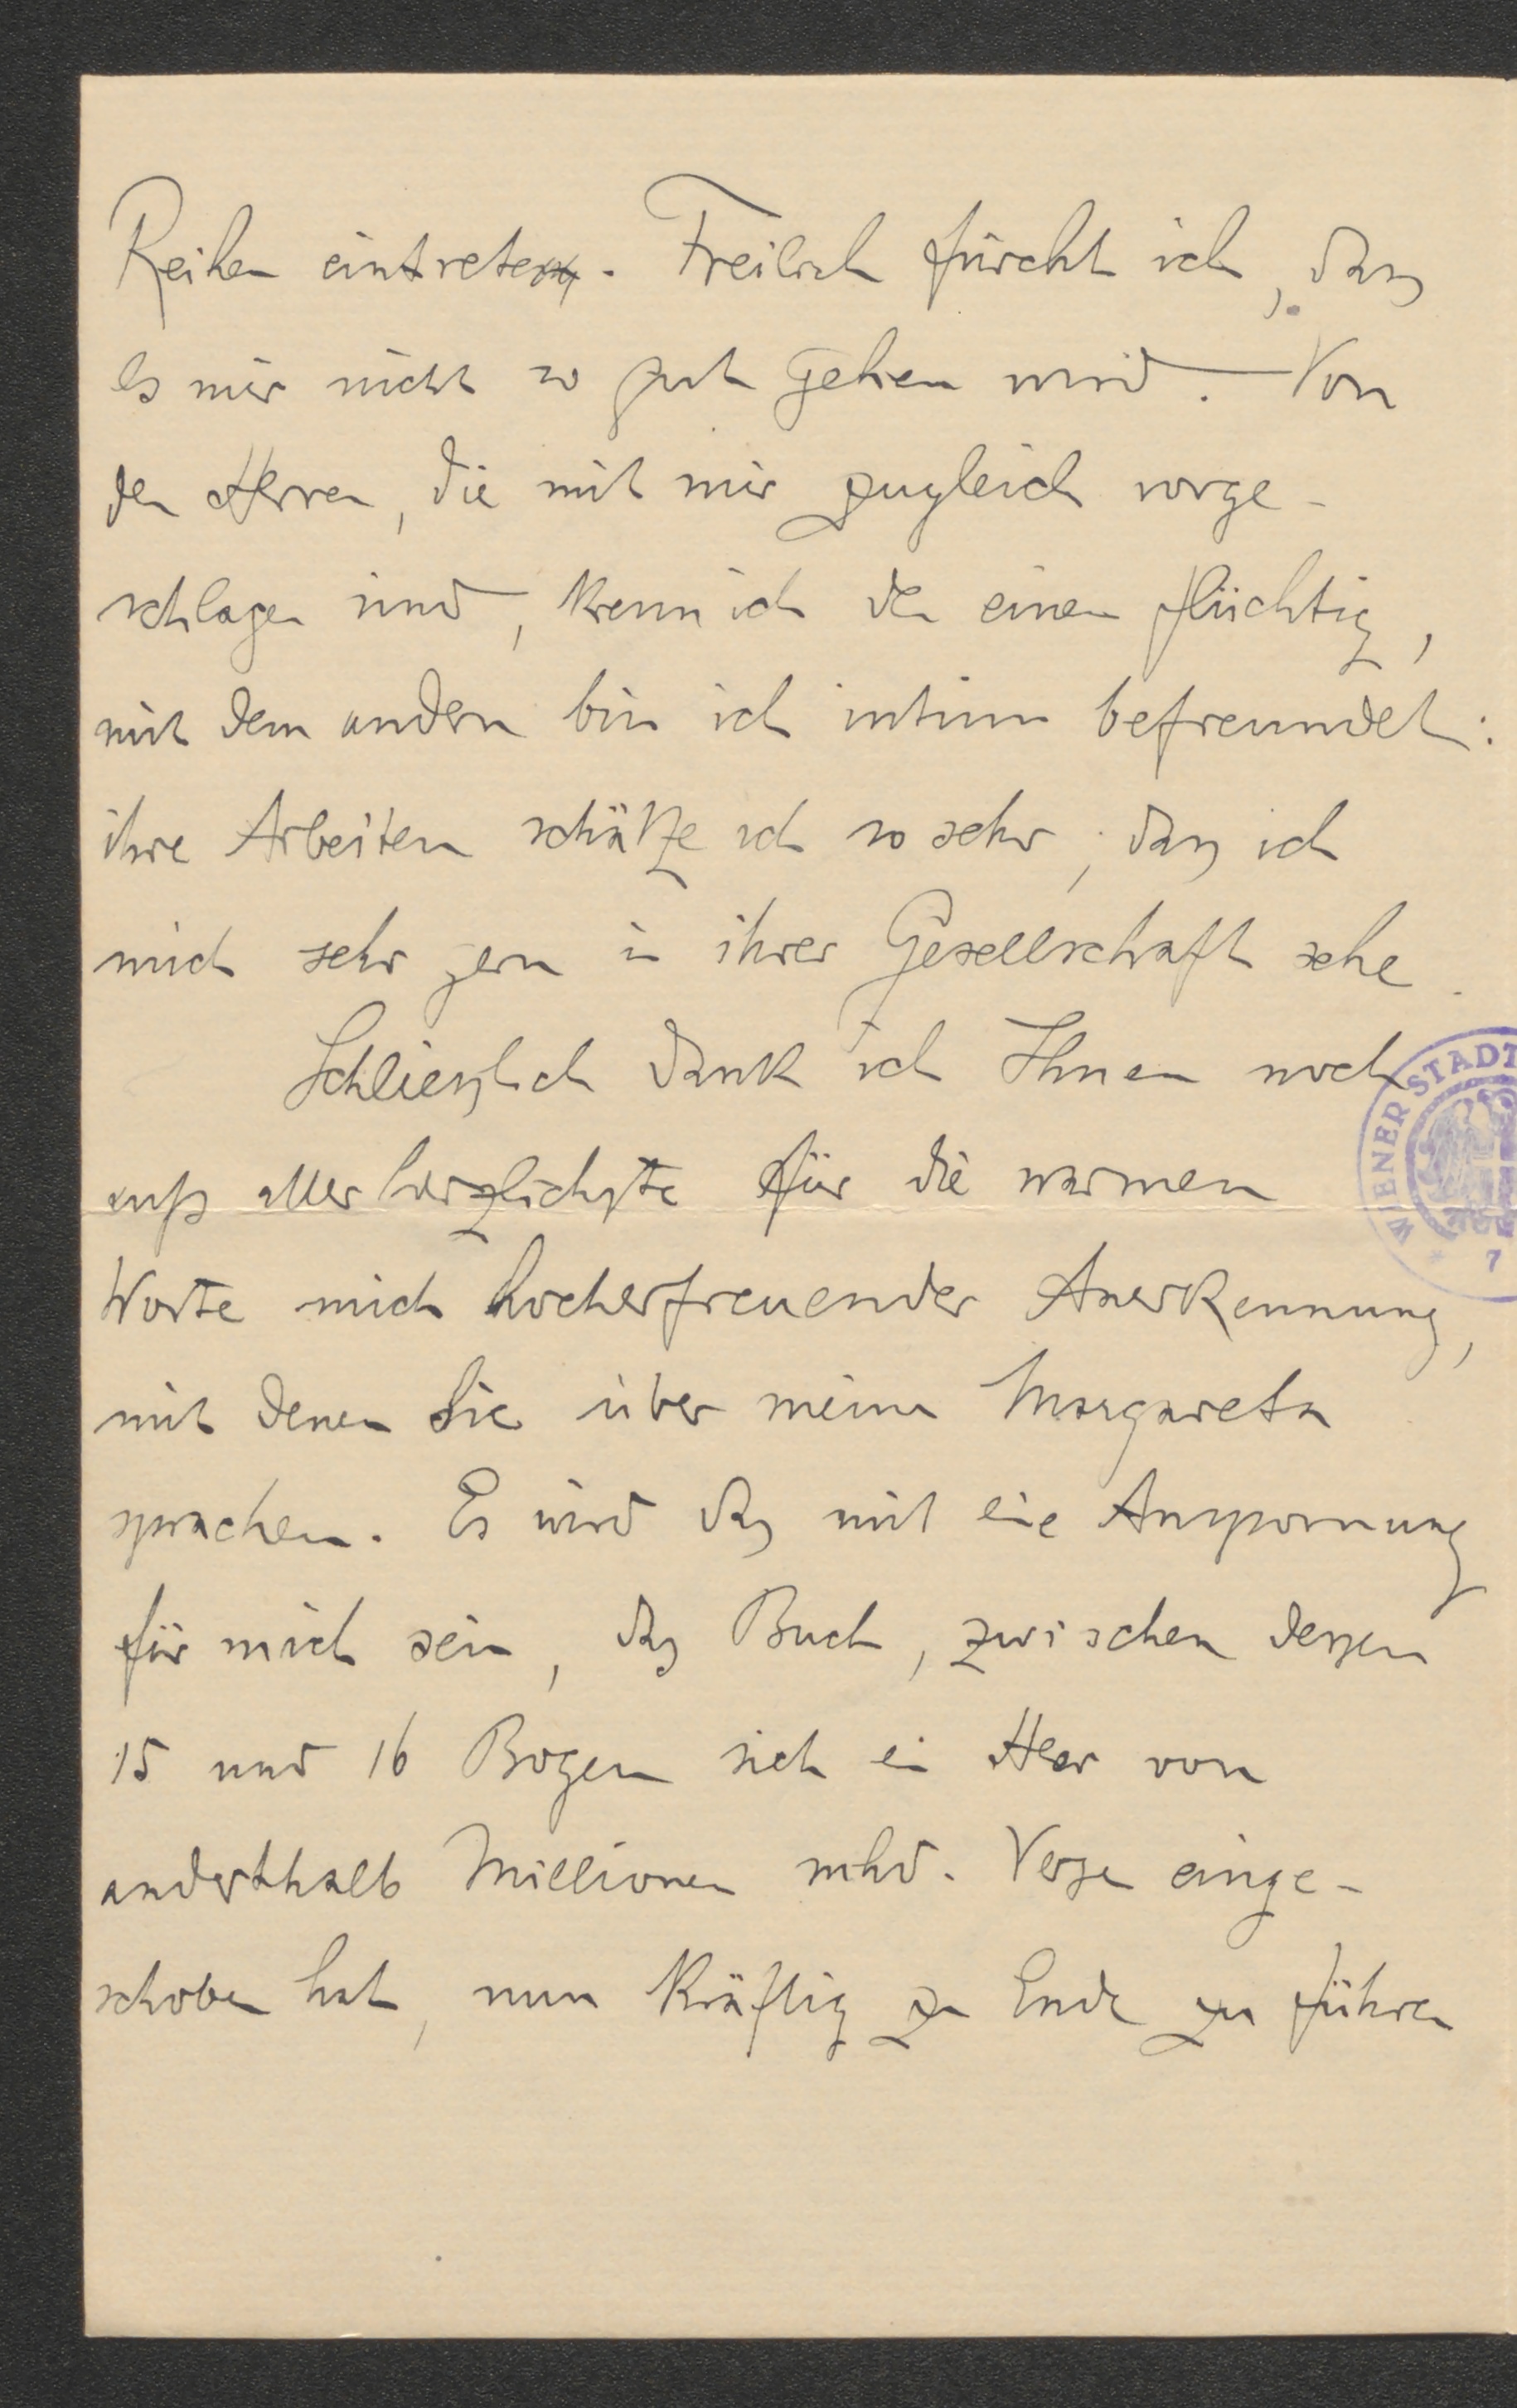 Reihen eintreten. Freilich fürcht ich, dasz
es mir nicht so gut gehen wird. — Von
den Herren, die mit mir zugleich vorge-
schlagen sind, kenn ich den einen flüchtig,
mit dem andern bin ich intim befreundet:
ihre Arbeiten schätze ich so sehr, dasz ich
mich sehr gern in ihrer Gesellschaft sehe.
Schlieszlich dank ich Ihnen noch
aufs allerherzlichste für die warmen
Worte mich hocherfreuender Anerkennung,
mit denen Sie über meine Margareta
sprachen. Es wird das mit eine Anspornung
für mich sein, das Buch, zwischen dessen
15 und 16 Bogen sich ein Heer von
anderthalb Millionen mhd. Verse einge-
schoben hat, nun kräftig zu Ende zu führen
WIENER STADT
7